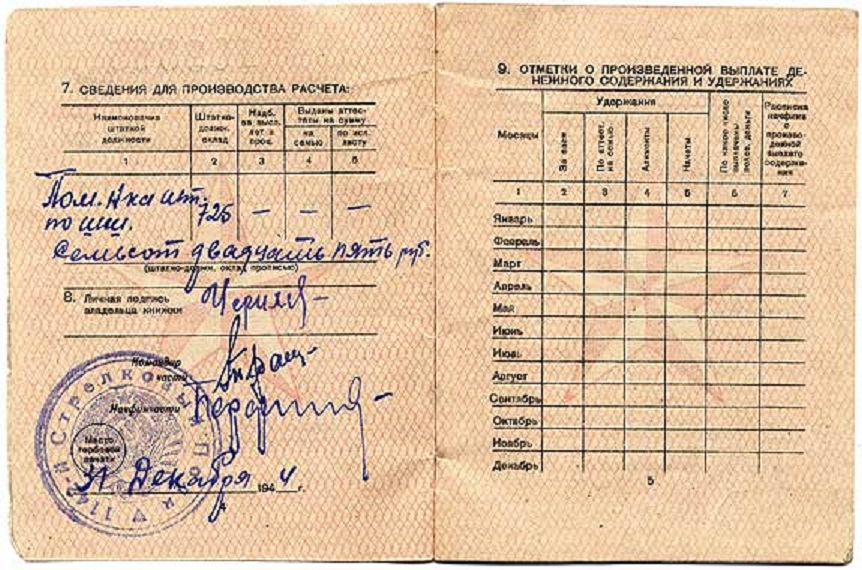 7. СВЕДЕНИЯ ДЛЯ ПРОИЗВОДСТВА РАСЧЕТА:
Наименования штатной должности
Штатно-должн. оклад
Надб. за высл. лет в проц.
Выданы аттестаты на сумму
на семью
по исп. листу
1 2 3 4 5
Пом. Н-ка шт. 725 — — —
по
Семьсот двадцать пять руб.
(штатно-должн. оклад прописью)
8. Личная подпись
владельца книжки
Командир
части
Начфинчасти
Место
гербовой
печати
Стрелковый Полк
31 Декабря 1944 г.
4
9. ОТМЕТКИ О ПРОИЗВЕДЕННОЙ ВЫПЛАТЕ ДЕ-
НЕЖНОГО СОДЕРЖАНИЯ И УДЕРЖАНИЯХ
Месяцы
Удержания
За заем
По аттест. на семью
Алименты
Начеты
По какое число выплачены полев. деньги
Расписка начфина о произведенной выплате содержания
1 2 3 4 5 6 7
Январь
Февраль
Март
Апрель
Май
Июнь
Июль
Август
Сентябрь
Октябрь
Ноябрь
Декабрь
5